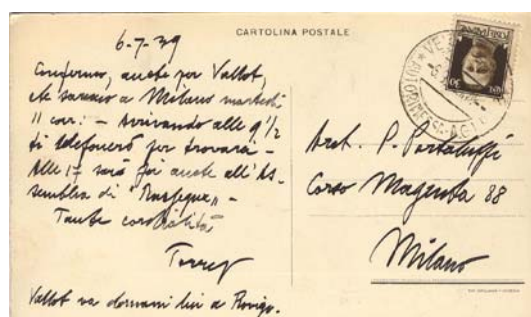 CARTOLINA POSTALE
6-7-39
Confermo, anche per Vallot,
che saremo a Milano martedì
11 corr: - Arrivando alle 9 1/2
ti telefonerò per trovarci -
Alle 17 sarò poi anche all'As-
semblea di "Rassegna" -
Tante cordialità
Torres
Vallot va domani lui a Rovigo.
Arch. P. Portaluppi
Corso Magenta 88
Milano